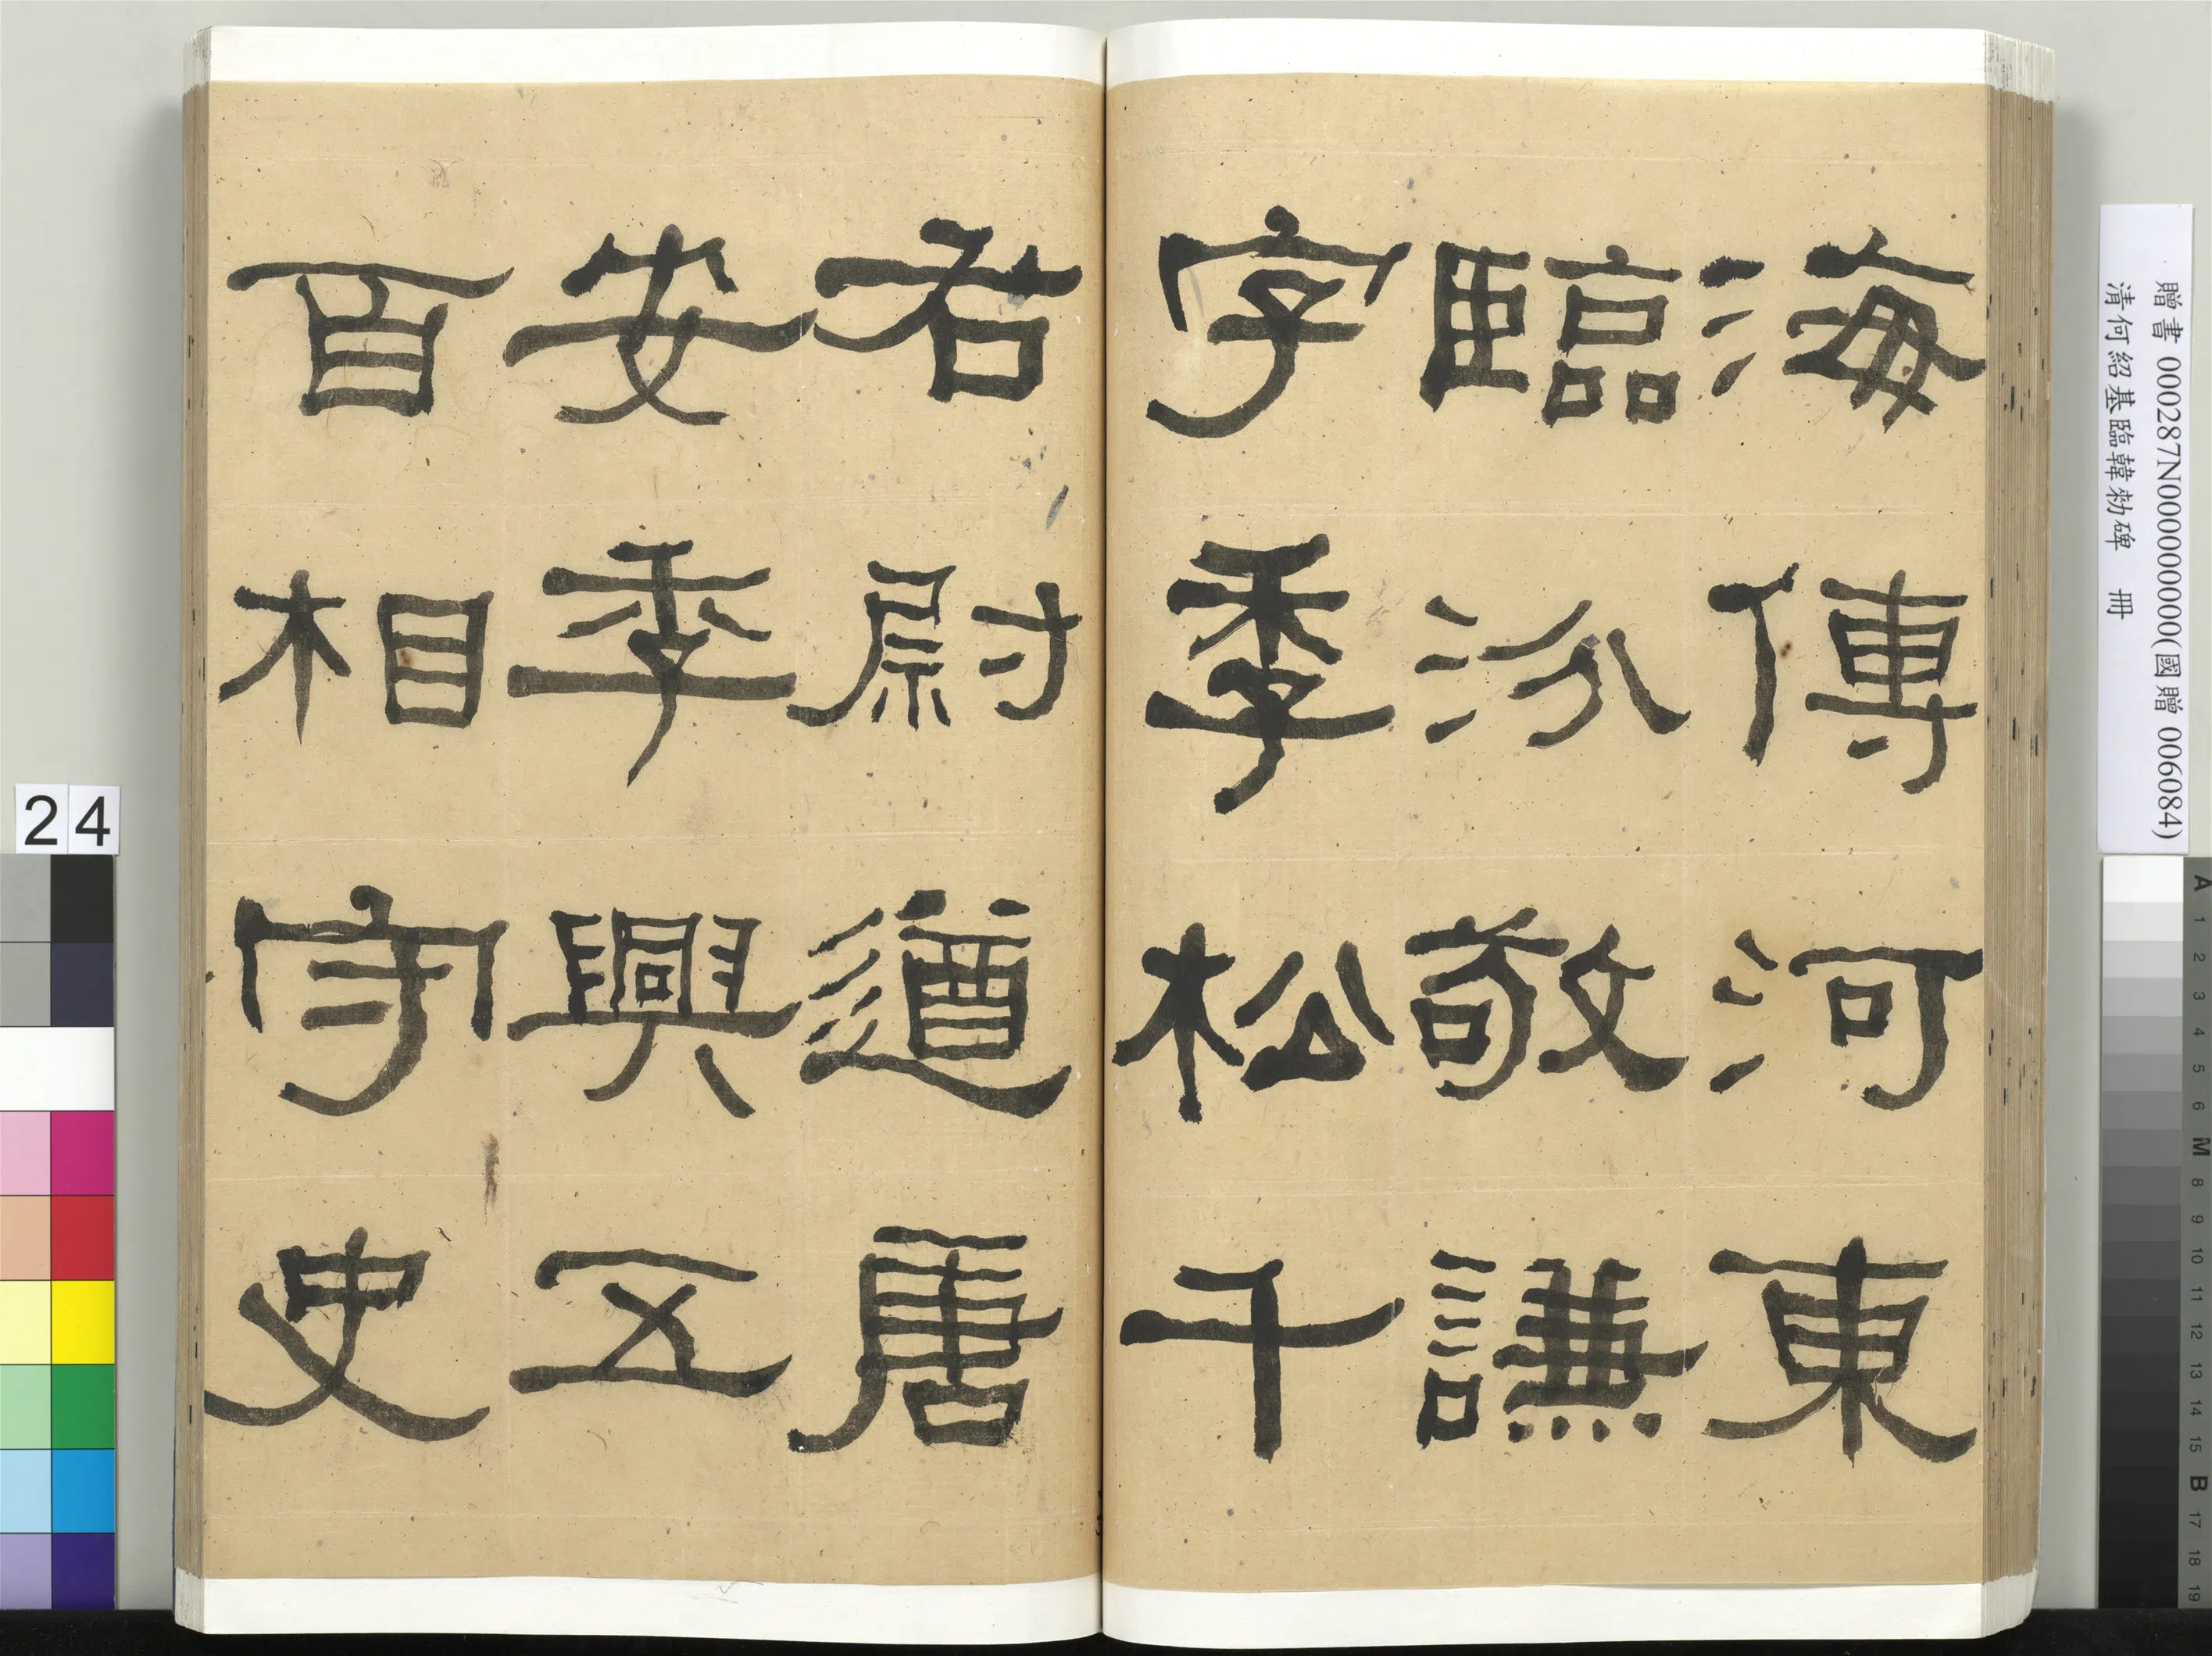 海傳河東
臨汾敬謙
字季松千
右尉遒唐
安季興五
百相守史
贈書 000287N000000000(國贈 006084)
清何紹基臨韓勑碑 冊
24
A 1 2 3 4 5 6 M 8 9 10 11 12 13 14 15 B 17 18 19